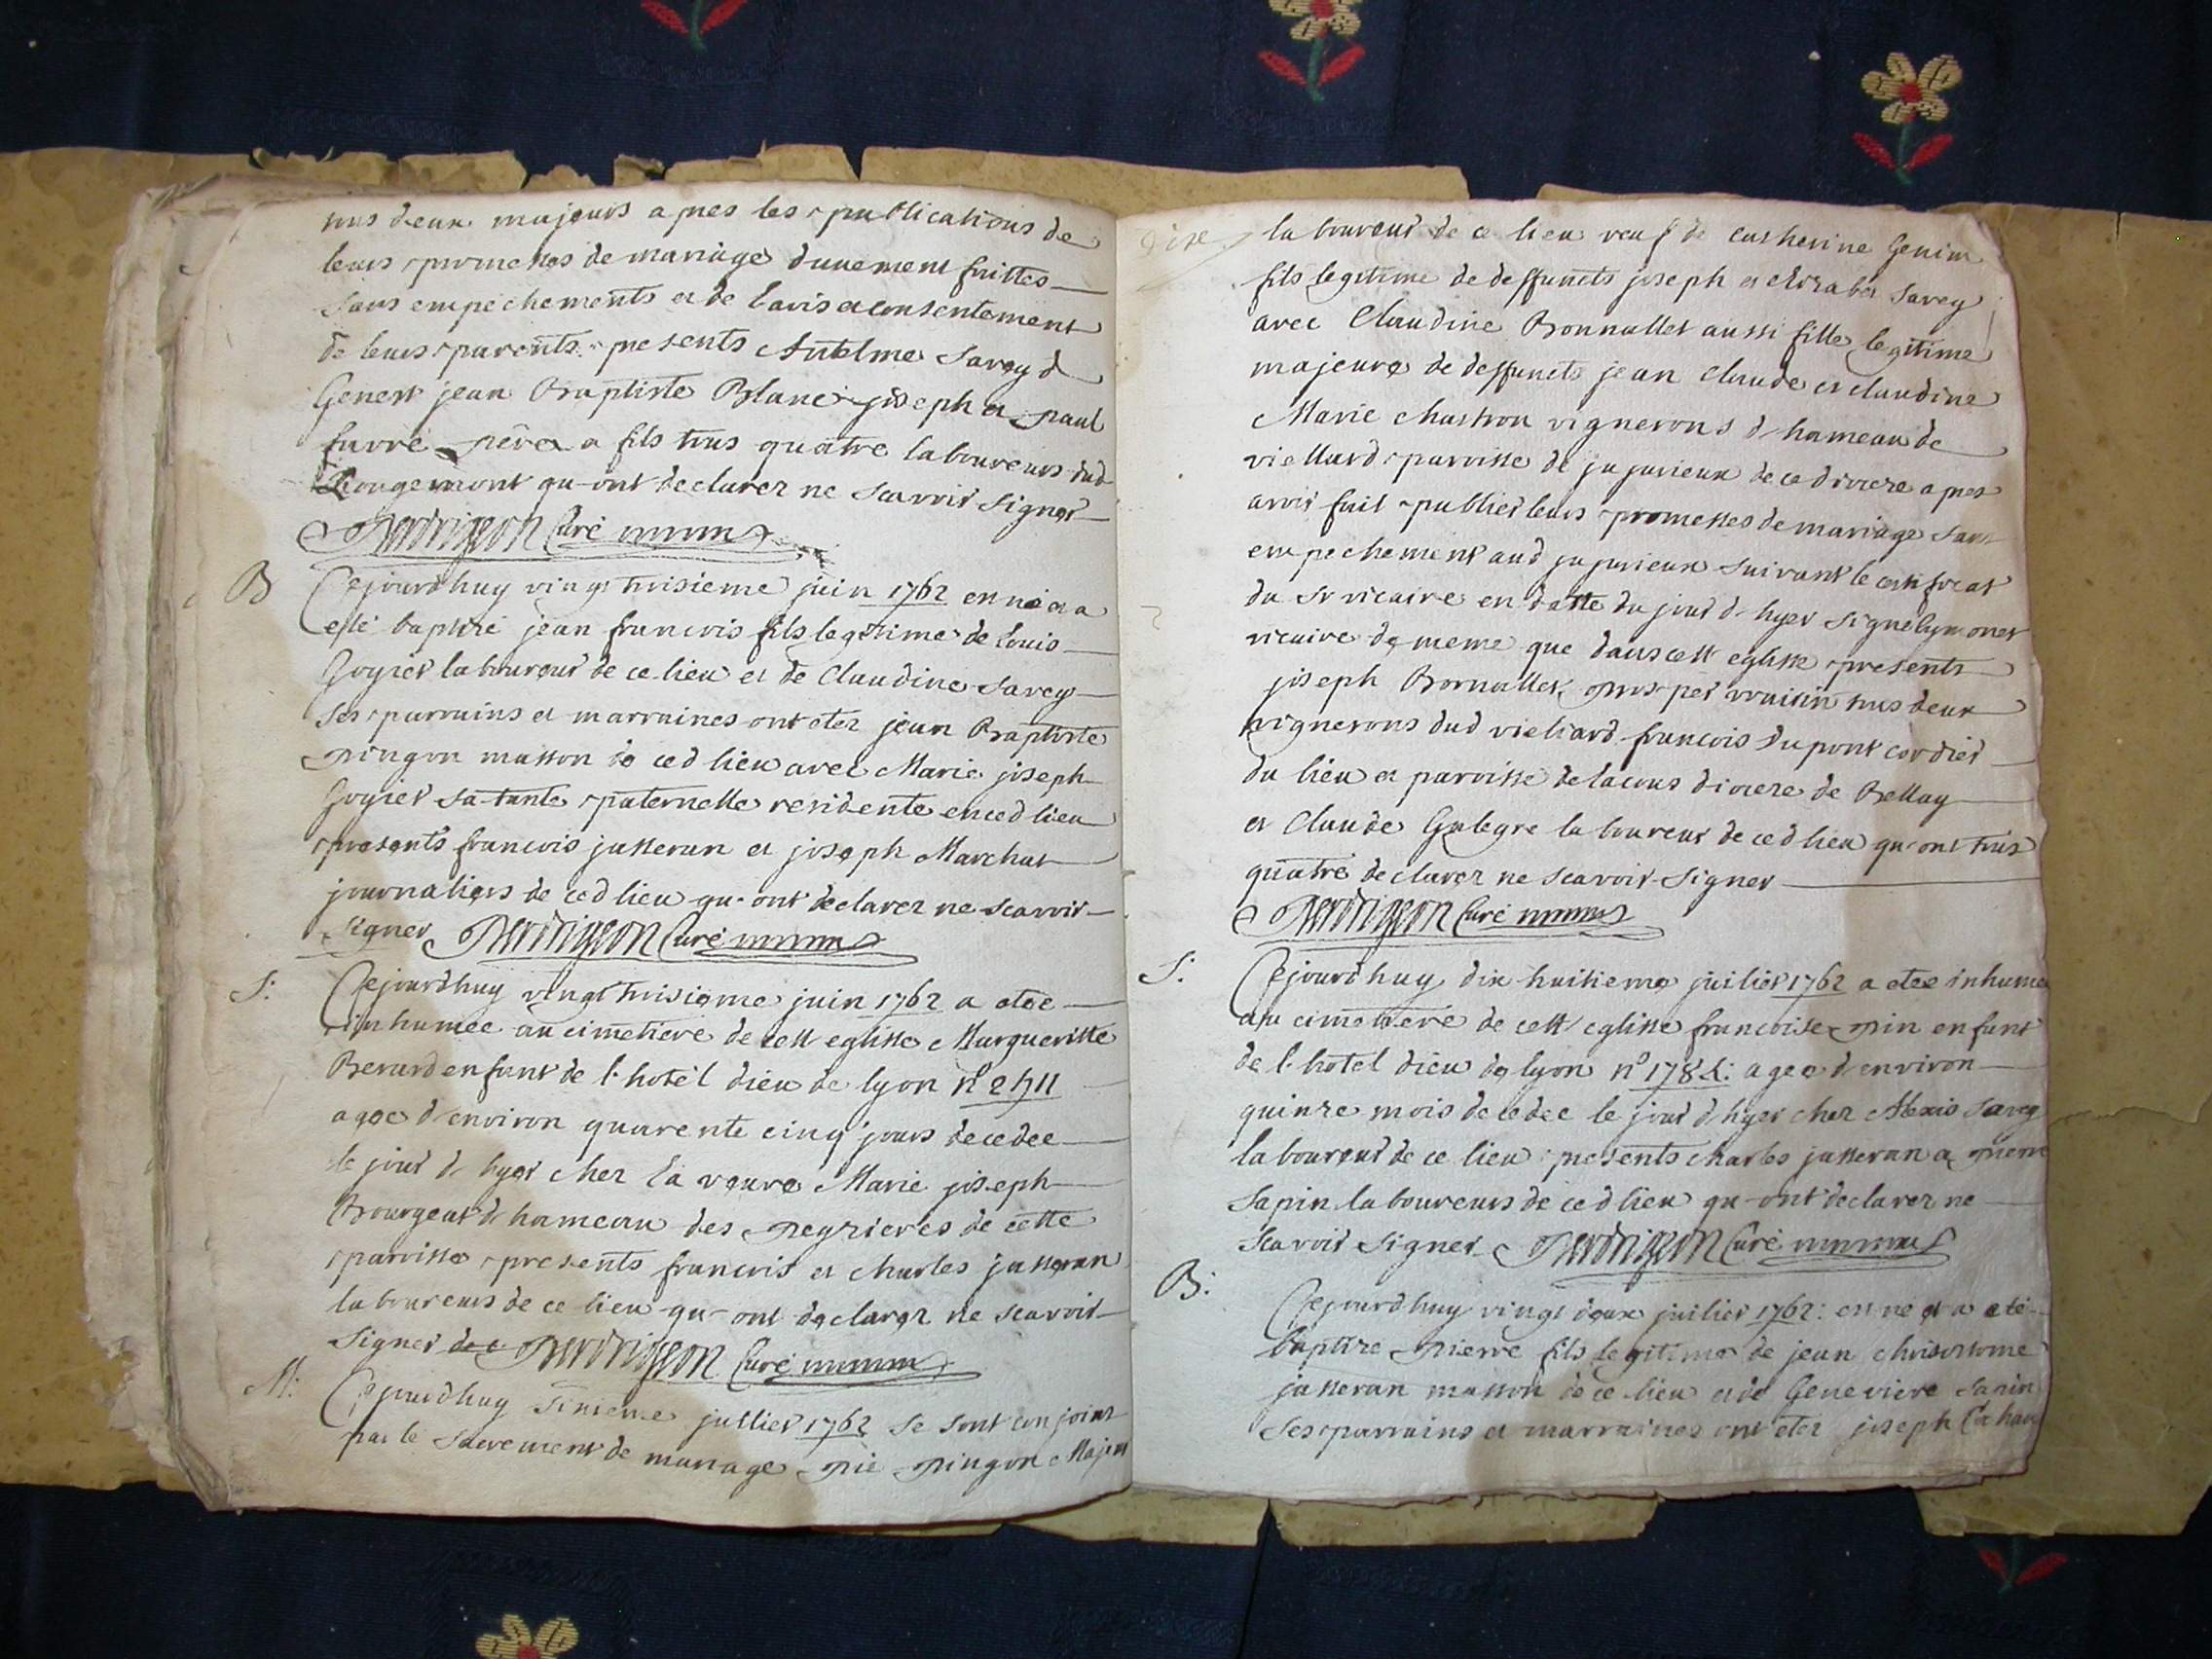 tous deux majeurs apres les publications de
leurs promesses de mariage duuement faittes
sans empechements et de lavis et consentement
de leurs parents presents Antelme Savey d
Genest jean Baptiste Blanc joseph et paul
favre pere et fils tous quatre laboureurs dud
Rougemont qu-ont declarez ne scavoir signer
Perdrigeon Curé
B
Cejourdhuy vingt troisieme juin 1762 en né et a
esté baptizé jean francois fils legitime de Louis
Goyret laboureur de ce lieu et de Claudine Savey
ses parrains et marraines ont etez jean Baptiste
pingon masson de ced lieu avec Marie joseph
Goyret sa tante paternelle residente en ced lieu
presents francois jusseran et joseph Marchat
journaliers de ced lieu qu-ont declarez ne scavoir
signer Perdrigeon Curé
S:
Cejourdhuy vingt troisieme juin 1762 a etee
inhumee au cimetiere de cett eglisse Margueritte
Berard enfant de l-hotel dieu de lyon
agee d-environ quarente cinq jours decedee
le jour d-hyer chez la veuve Marie joseph
Bourgeat d-hameau des pegrieres de cette
paroisse presents francois et charles jusseran
laboureurs de ce lieu qu-ont declarez ne scavoir
signer Perdrigeon Curé
M:
Cejourdhuy sixieme juillet 1762 se sont conjoints
par le sacrement de mariage pie pingon Majeur
laboureur de ce lieu veuf de catherine Genin
fils legitime de deffuncts joseph et elizabet Savey
avec Claudine Bonnallet aussi fille legitime
majeure de deffuncts jean claude et claudine
Marie chastron vignerons d-hameau de
viellard paroisse de jujurieux de ce dioceze apres
avoir fait publier leurs promesses de mariage sans
empechement aud jujurieux suivant le certificat
du Sr vicaire en datte du jour d-hyer signé
vicaire de meme que dans cett eglisse presents
joseph Bonnallet prosper vouisin tous deux
vignerons dud vieliard francois dupont cordier
du lieu et paroisse de lacous dioceze de Bellay
et Claude Galegre laboureur de ced lieu qu-ont tous
quatre declarez ne scavoir signer
Perdrigeon Curé
S:
Cejourdhuy dix huitieme juilier 1762 a etee inhumee
au cimetiere de cett eglisse francoise pin enfant
de l-hotel dieu de lyon agee d-environ
quinze mois decedee le jour d-hyer chez Alexis Savey
laboureur de ce lieu presents charles jusseran et pierre
Sapin laboureurs de ced lieu qu-ont declarez ne
scavoir signer Perdrigeon Curé
B:
Cejourdhuy vingt deux juilier 1762: en né et a eté
baptize pierre fils legitime de jean chrisostome
jusseran masson de ce lieu et de Genevieve Sapin
ses parrains et marraines ont etez joseph